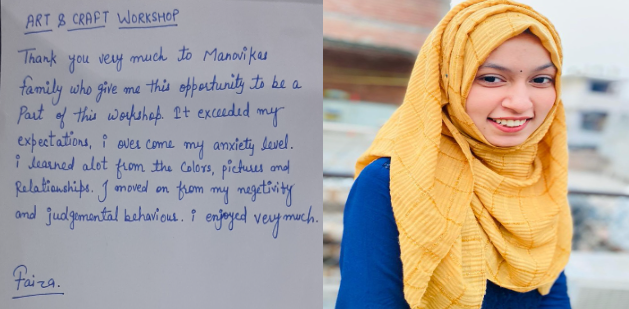 ART & CRAFT WORKSHOP
Thank you very much to Manovikas
family who give me this opportunity to be a
Part of this workshop. It exceeded my
expectations, i over come my anxiety level.
i learned alot from the colors, pictures and
Relationships. I moved on from my negetivity
and judgemental behaviour. i enjoyed very much.
Faiza.